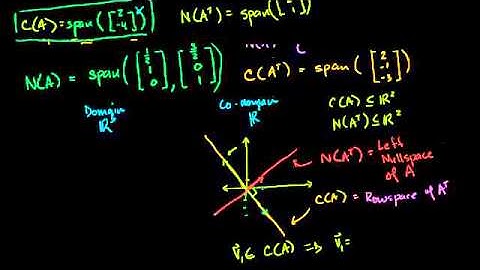 C(A) = span([2 -4])
N(A^T) = span(
N(A) = span([1/2 1 0], [3/2 0 1])
C(A^T) = span([2 -1 -3])
Domain
R^3
Co-domain
R
C(A) ⊆ R^2
N(A^T) ⊆ R^2
N(A^T) = Left
Nullspace
of A
C(A) = Rowspace of A^T
v⃗₁ ∈ C(A) ⇒ v⃗₁ =